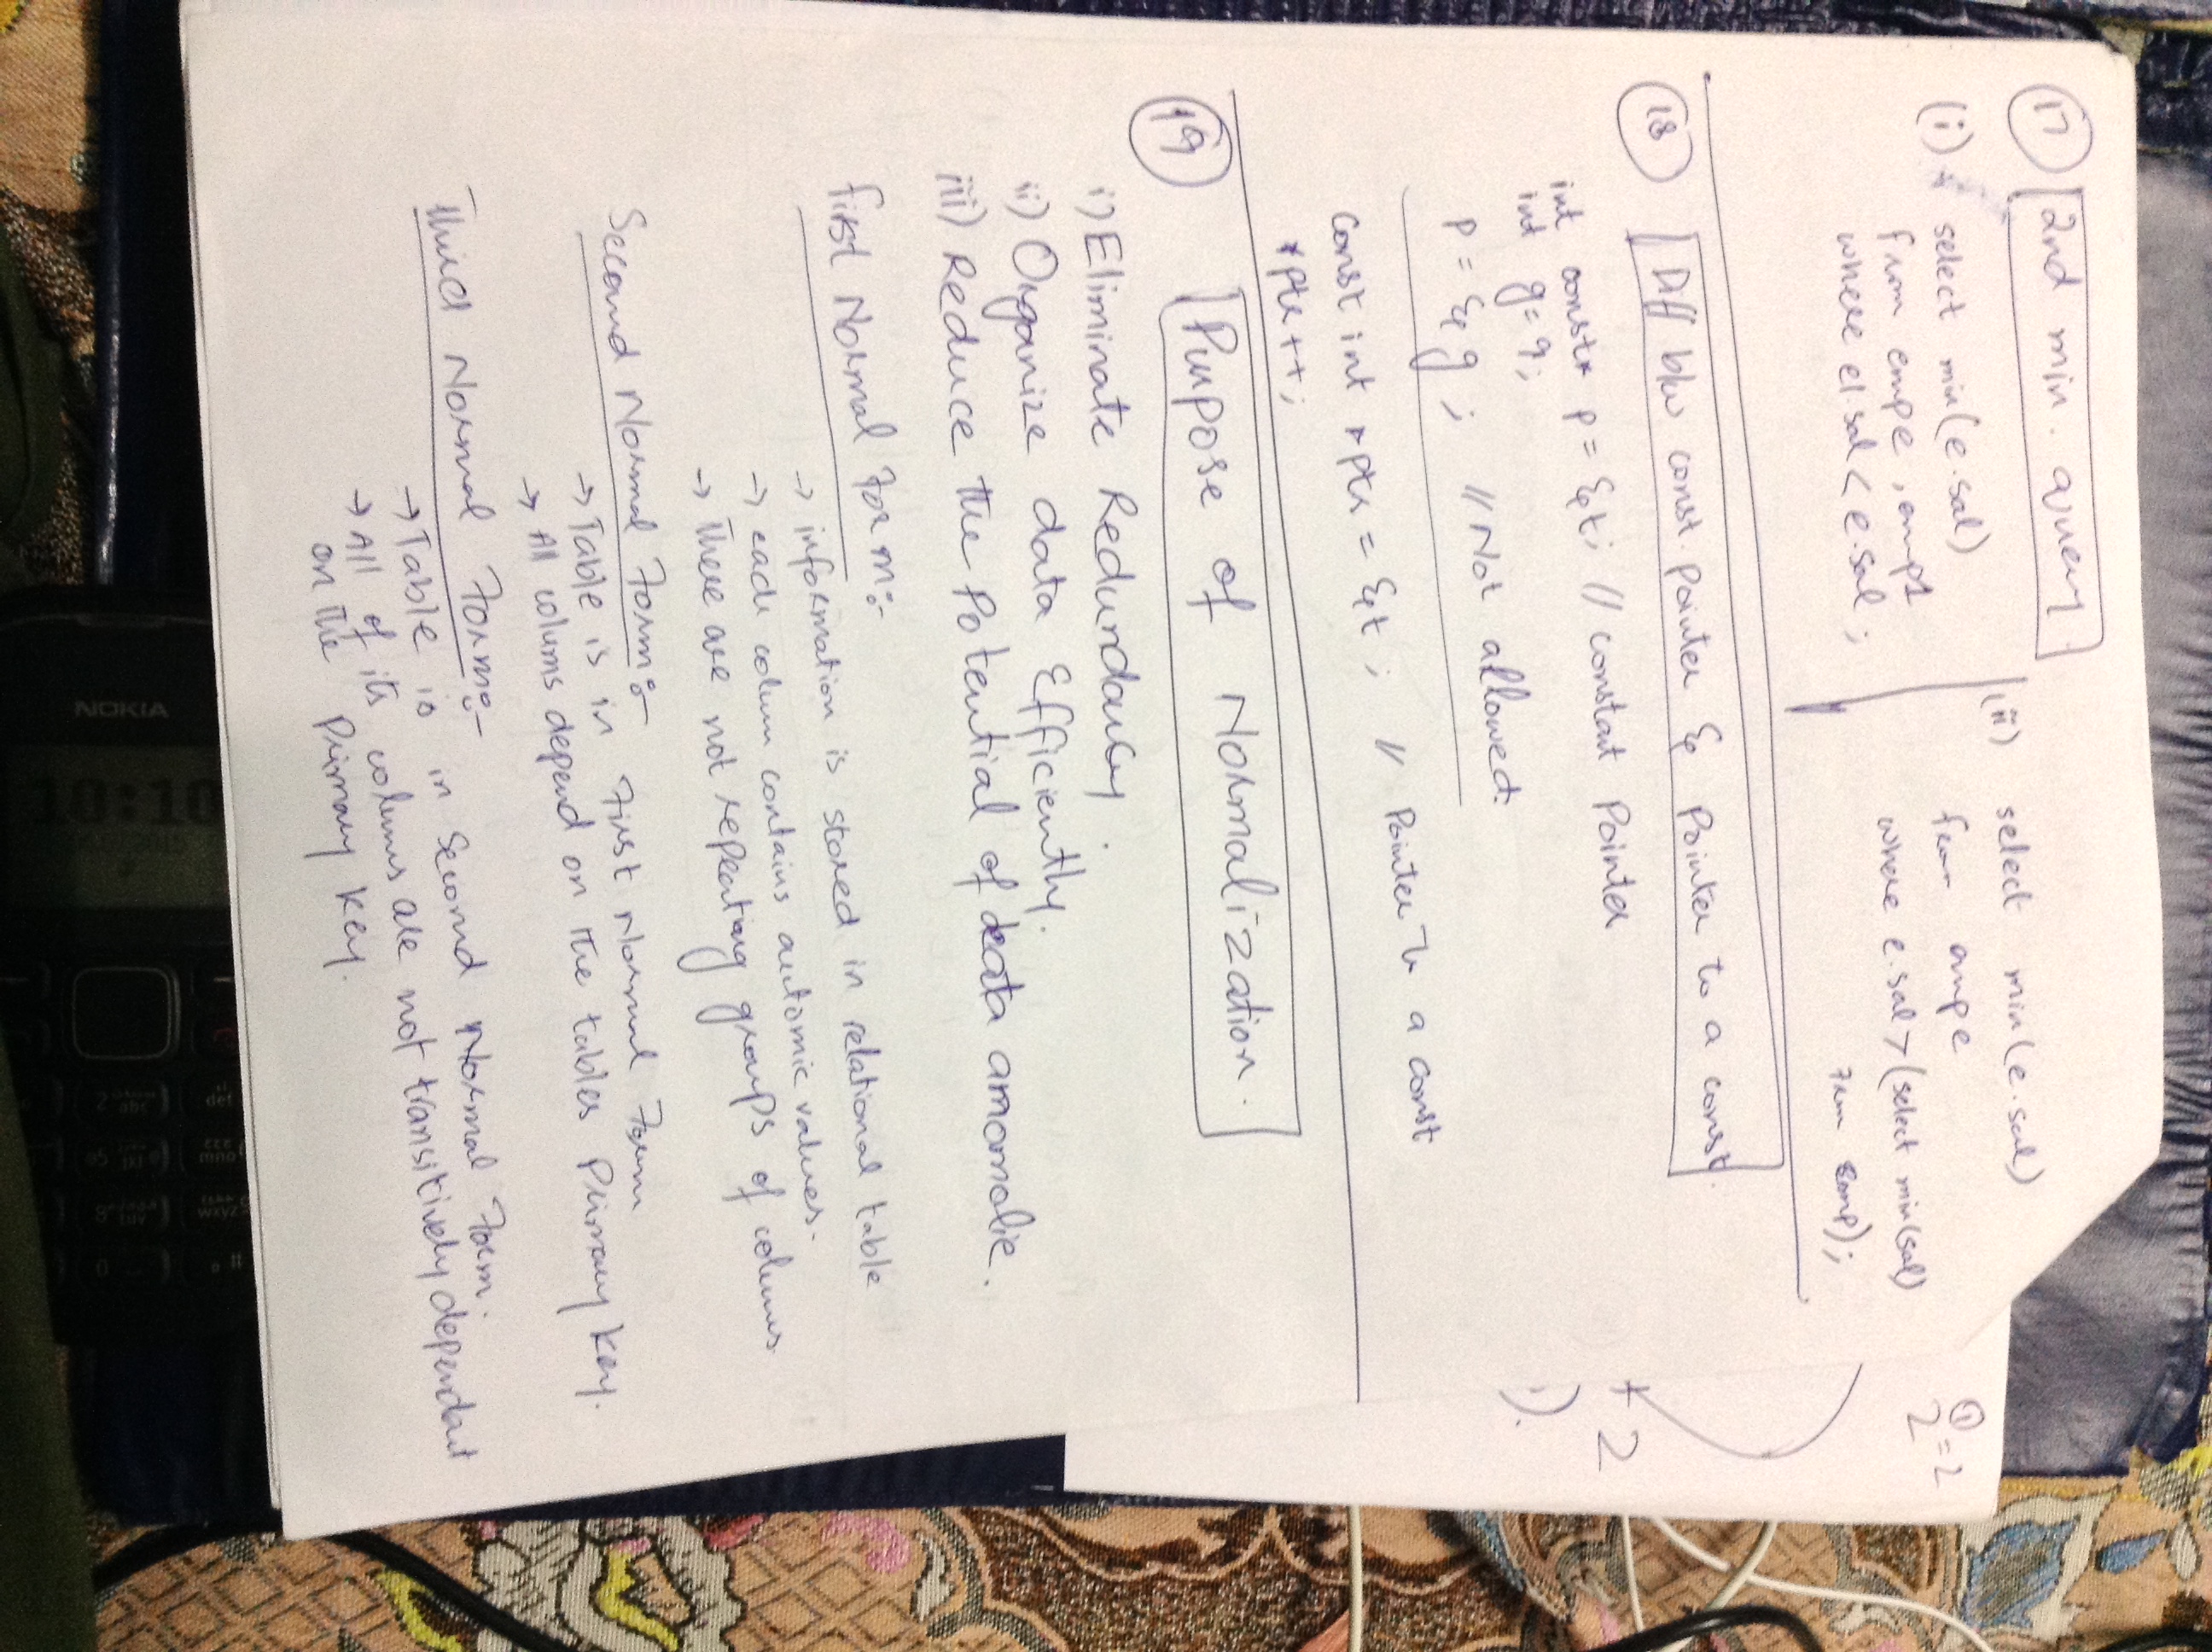 17 2nd min. query
(i) select min(e.sal)
from emp e , emp1
where e1.sal < e.sal ;
(ii) select min(e.sal)
from emp e
where e.sal > (select min(sal)
from Emp);
18 Diff b/w const. pointer & Pointer to a const.
int const* p = &t; // constant Pointer
int g = 9;
p = &g ; // Not allowed.
Const int *ptr = &t ; // Pointer to a const
*ptr++;
19 Purpose of Normalization.
i) Eliminate Redundancy.
ii) Organize data Efficiently.
iii) Reduce the Potential of data anomolie.
first Normal Form:-
→ information is stored in relational table
→ each colum contains automic values.
→ There are not repeating groups of colums.
Second Normal Form:-
→ Table is in First Normal Form
→ All colums depend on the tables Primary Key.
Third Normal Form:-
→ Table is in Second Normal Form.
→ All of its colums are not transitively dependant
on the Primary Key.
1
2 = 2
+ 2
).
NOKIA
10:10